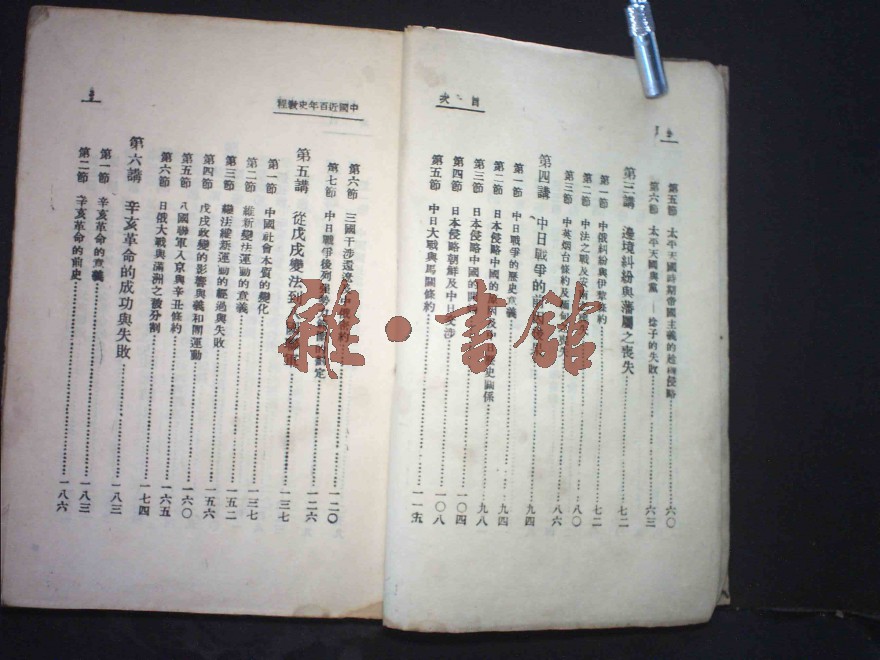 目次
第五節 太平天國時期帝國主義的趁機侵略 六〇
第六節 太平天國與黨 的失敗 六三
第三講 邊境糾紛與藩屬之喪失 七二
第一節 中俄糾紛與伊犂條約 七二
第二節 中法之戰及安南 八〇
第三節 中英烟台條約及緬甸 喪失 八六
第四講 中日戰爭的前因 九四
第一節 中日戰爭的歷史意義 九四
第二節 日本侵略中國的 史關係 九八
第三節 日本侵略中國的開
第四節 日本侵略朝鮮及中日交涉 一〇四
第五節 中日大戰與馬關條約 一〇八
中國近百年史教程
第六節 三國干涉還遼 中俄密約 一二〇
第七節 中日戰爭後列强勢力 的劃定 一二六
第五講 從戊戌變法到八國聯軍 一三七
第一節 中國社會本質的變化
第二節 維新變法運動的意義 一三七
第三節 變法維新運動的經過與失敗 一五二
第四節 戊戌政變的影響與義和團運動 一五六
第五節 八國聯軍入京與辛丑條約 一六〇
第六節 日俄大戰與滿洲之被分割 一六五
一七四
第六講 辛亥革命的成功與失敗 一八三
第一節 辛亥革命的意義 一八三
第二節 辛亥革命的前史 一八六
雜·書館